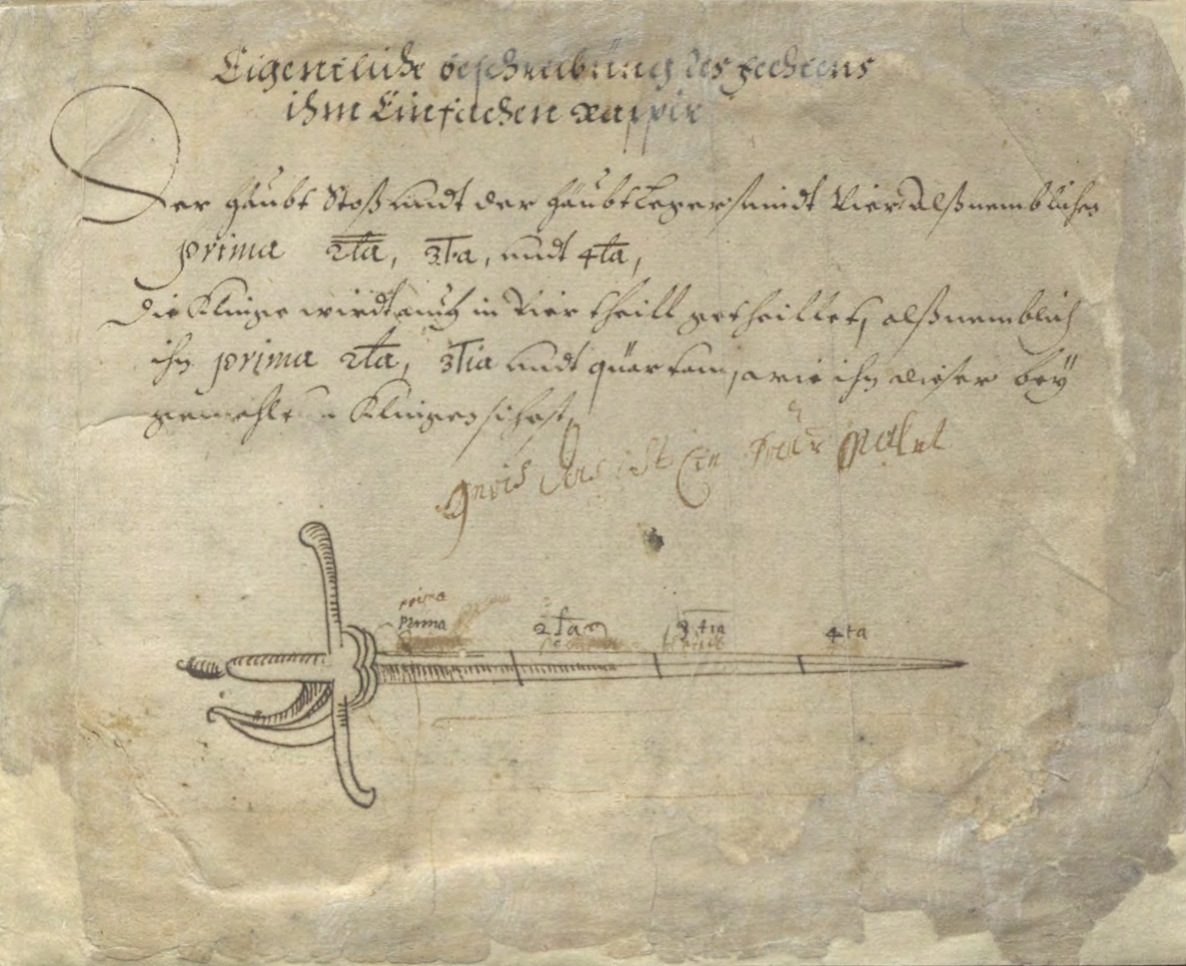 Eigentliche beschreibüng des fechtens
ihm Einfachen rappir
Der haubt Stoß undt der haubtleger seindt Vier Alß nemblichen
prima 2ta, 3tia, undt 4ta,
die Klinge wirdt auch in Vier theill getheillet, alß nemblich
ihn prima 2ta, 3tia undt quartam, wie ihn dieser bey
gemahlten Klingen sihest,
das ist Ein
prima
prima
2ta
3tia
4ta